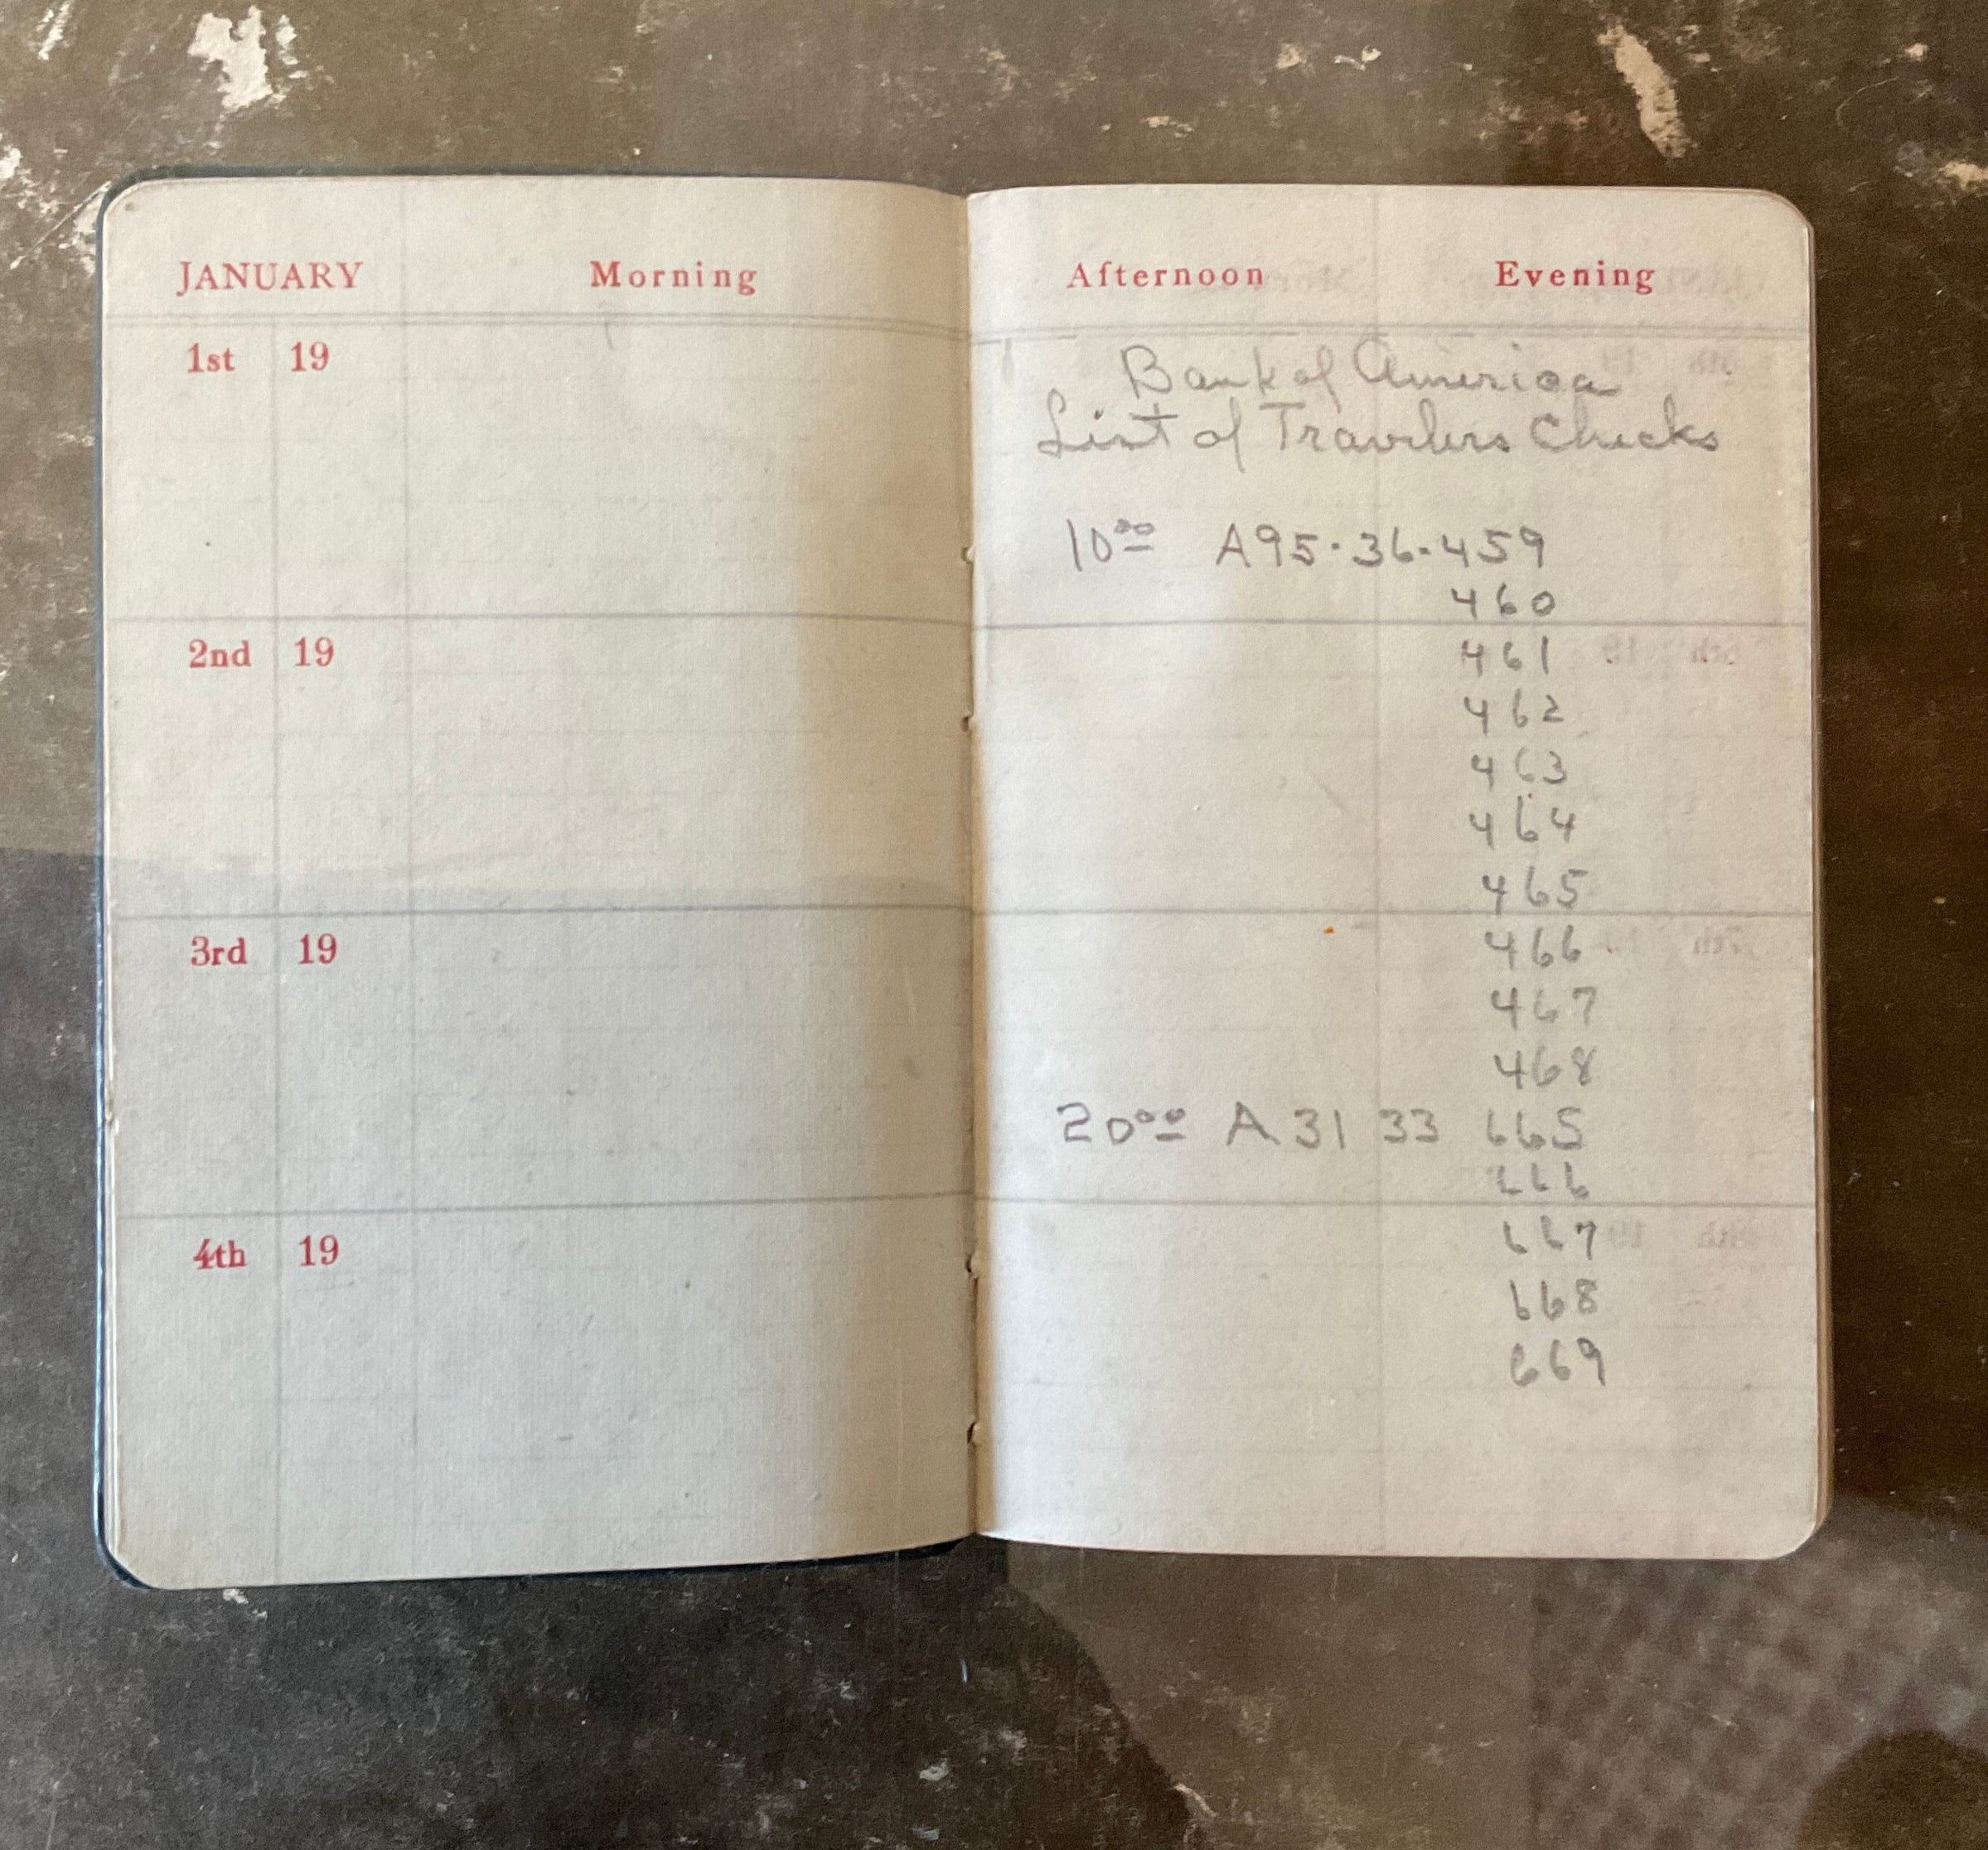 JANUARY Morning
1st 19
2nd 19
3rd 19
4th 19
Afternoon Evening
Bank of America
List of Travelers Checks
10⁰⁰ A95·36·459
460
461
462
463
464
465
466
467
468
20⁰⁰ A 31 33 665
666
667
668
669